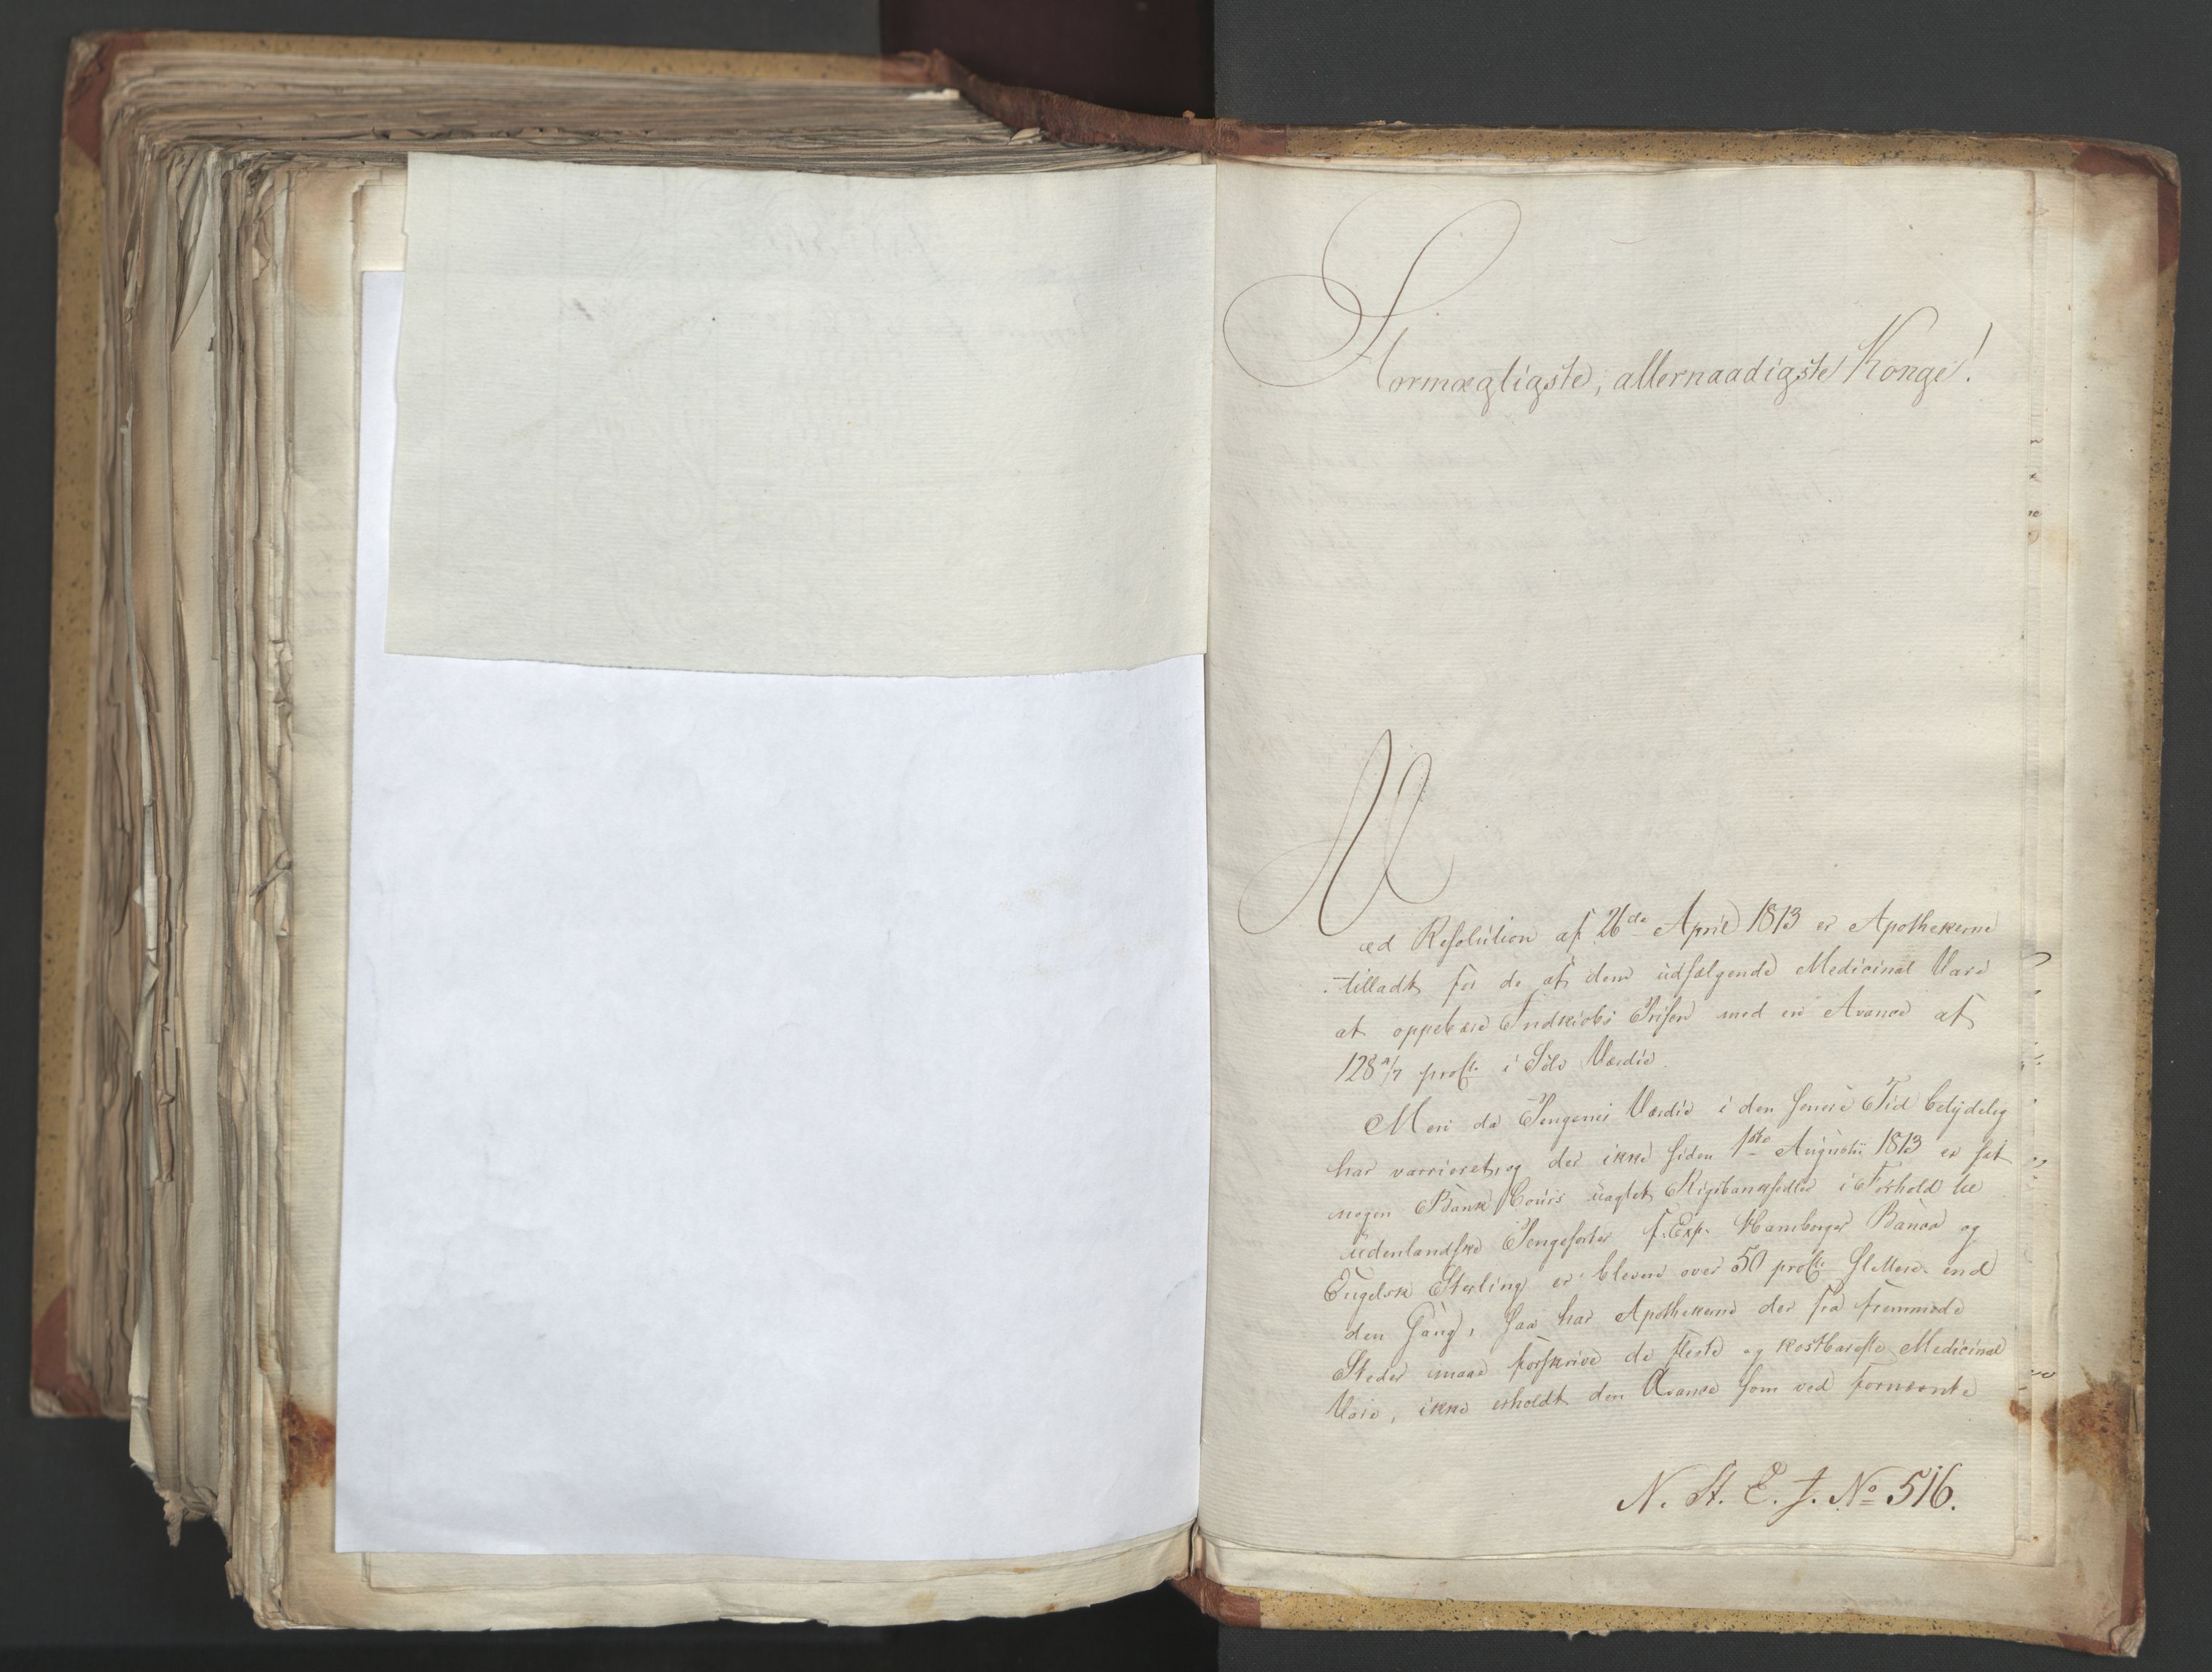 Stormægtigste, allernaadigste Konge!
Ved Resolution af 26de April 1813 er Apothekerne
tilladt for de af dem udsælgende Medicinal Vare
at oppebære Indkiøbs Prisen med en Avance af
128 4/7 proCt. i Sølv Værdie.
Men da Pengenes Værdie i den senere Tid betydelig
har varrieret, og der ikke siden 1ste Augusti 1813 er sat
nogen Bank Cours uagtet Rigsbanksedler i Forhold til
udenlandske Pengesorter f. Exp. Hamborger Banco og
Engelsk Sterling er bleven over 50 proCt. slettere end
den Gang, saa har Apothekerne der fra fremmede
Steder maae forskrive de fleste og kostbareste Medicinal
Vare, ikke erholdt den Avance som ved fornævnte
N. St. E. J. No 516.